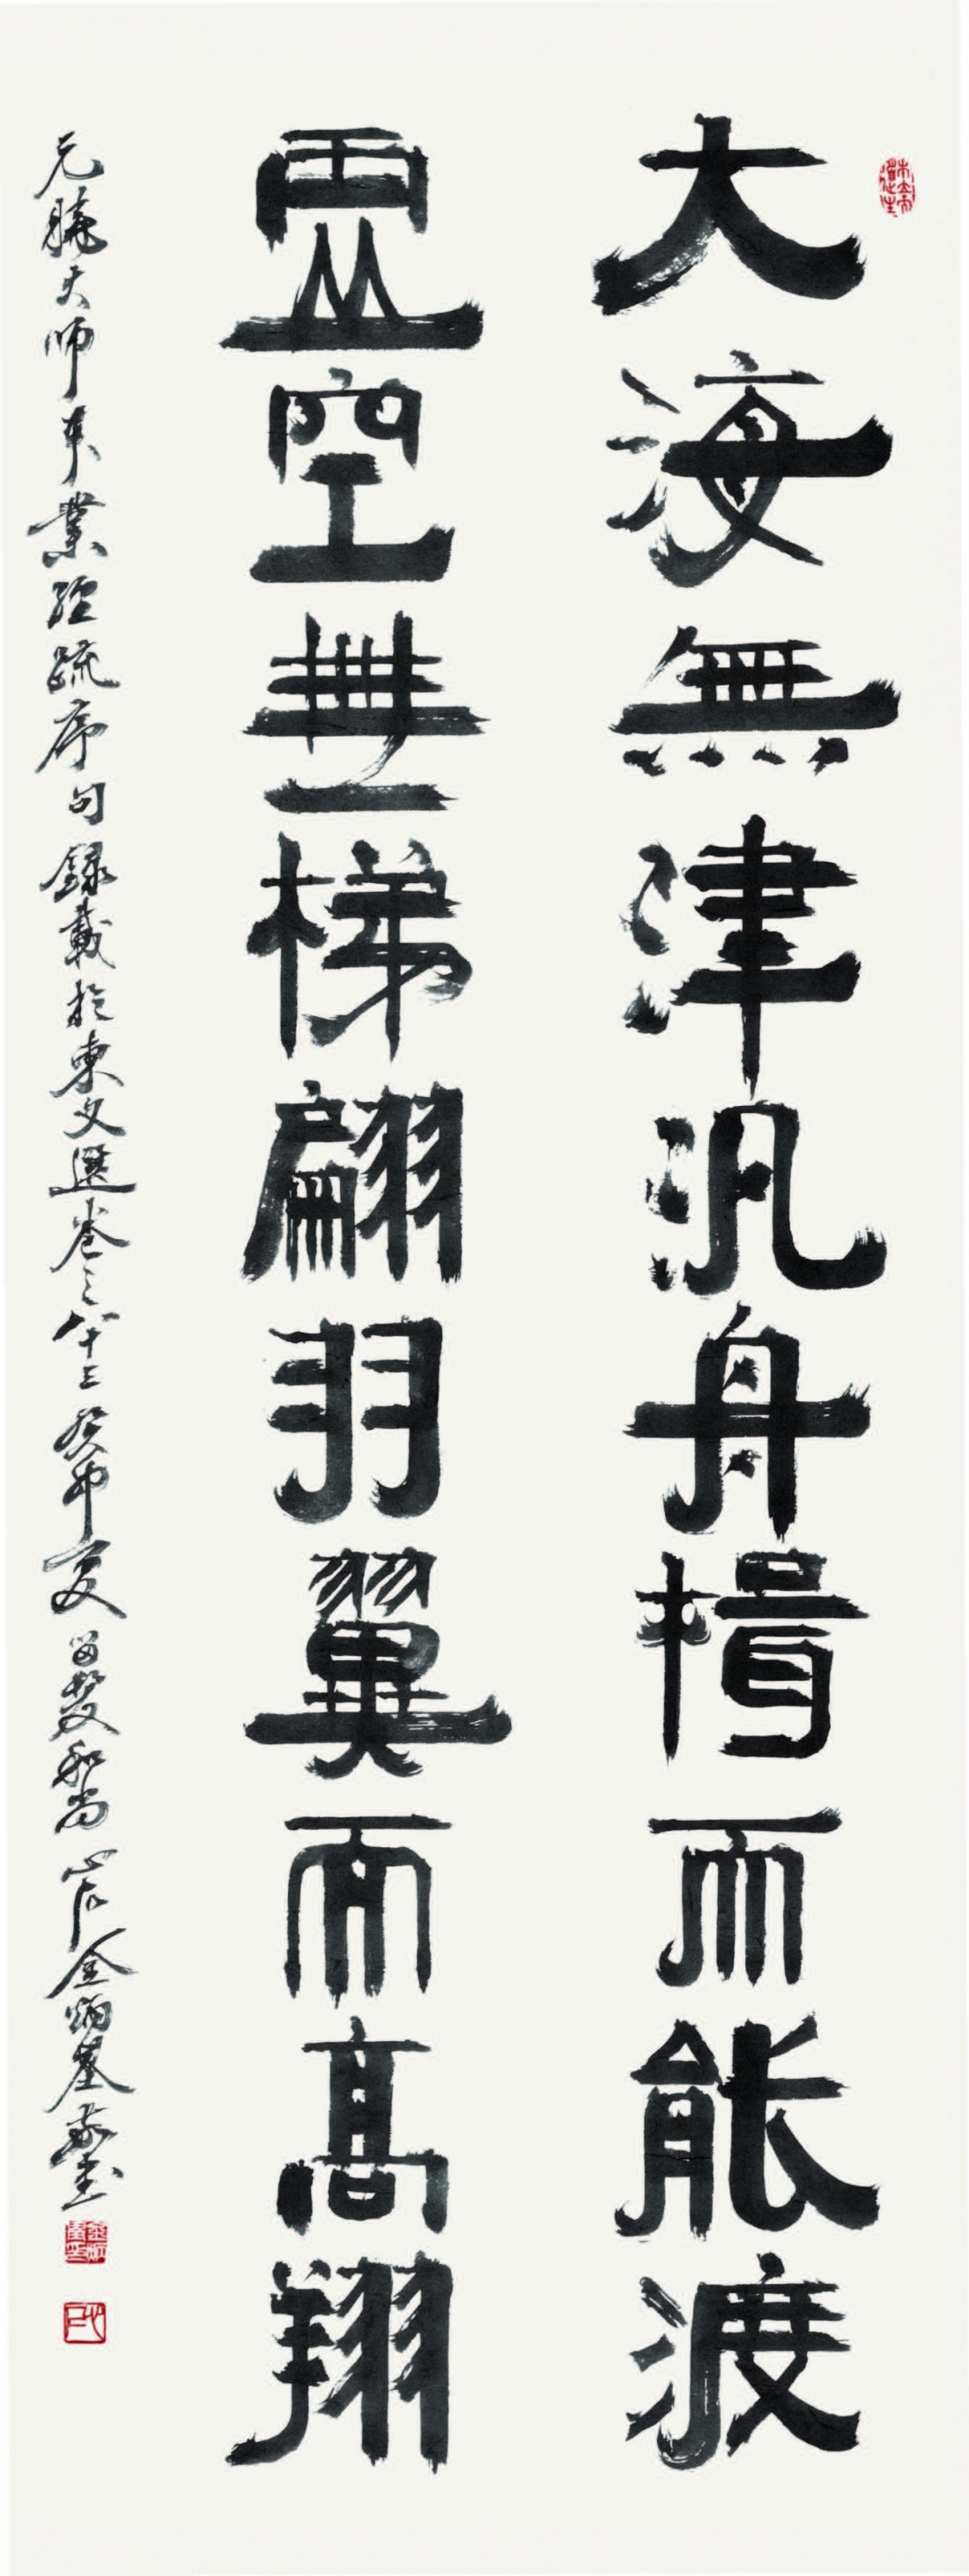 大海無津汎舟楫而能渡
虛空無梯翩羽翼而高翔
元曉大師本業經疏序句録載於東文選卷之八十三癸卯夏留髮和尚心石金炳基敬書